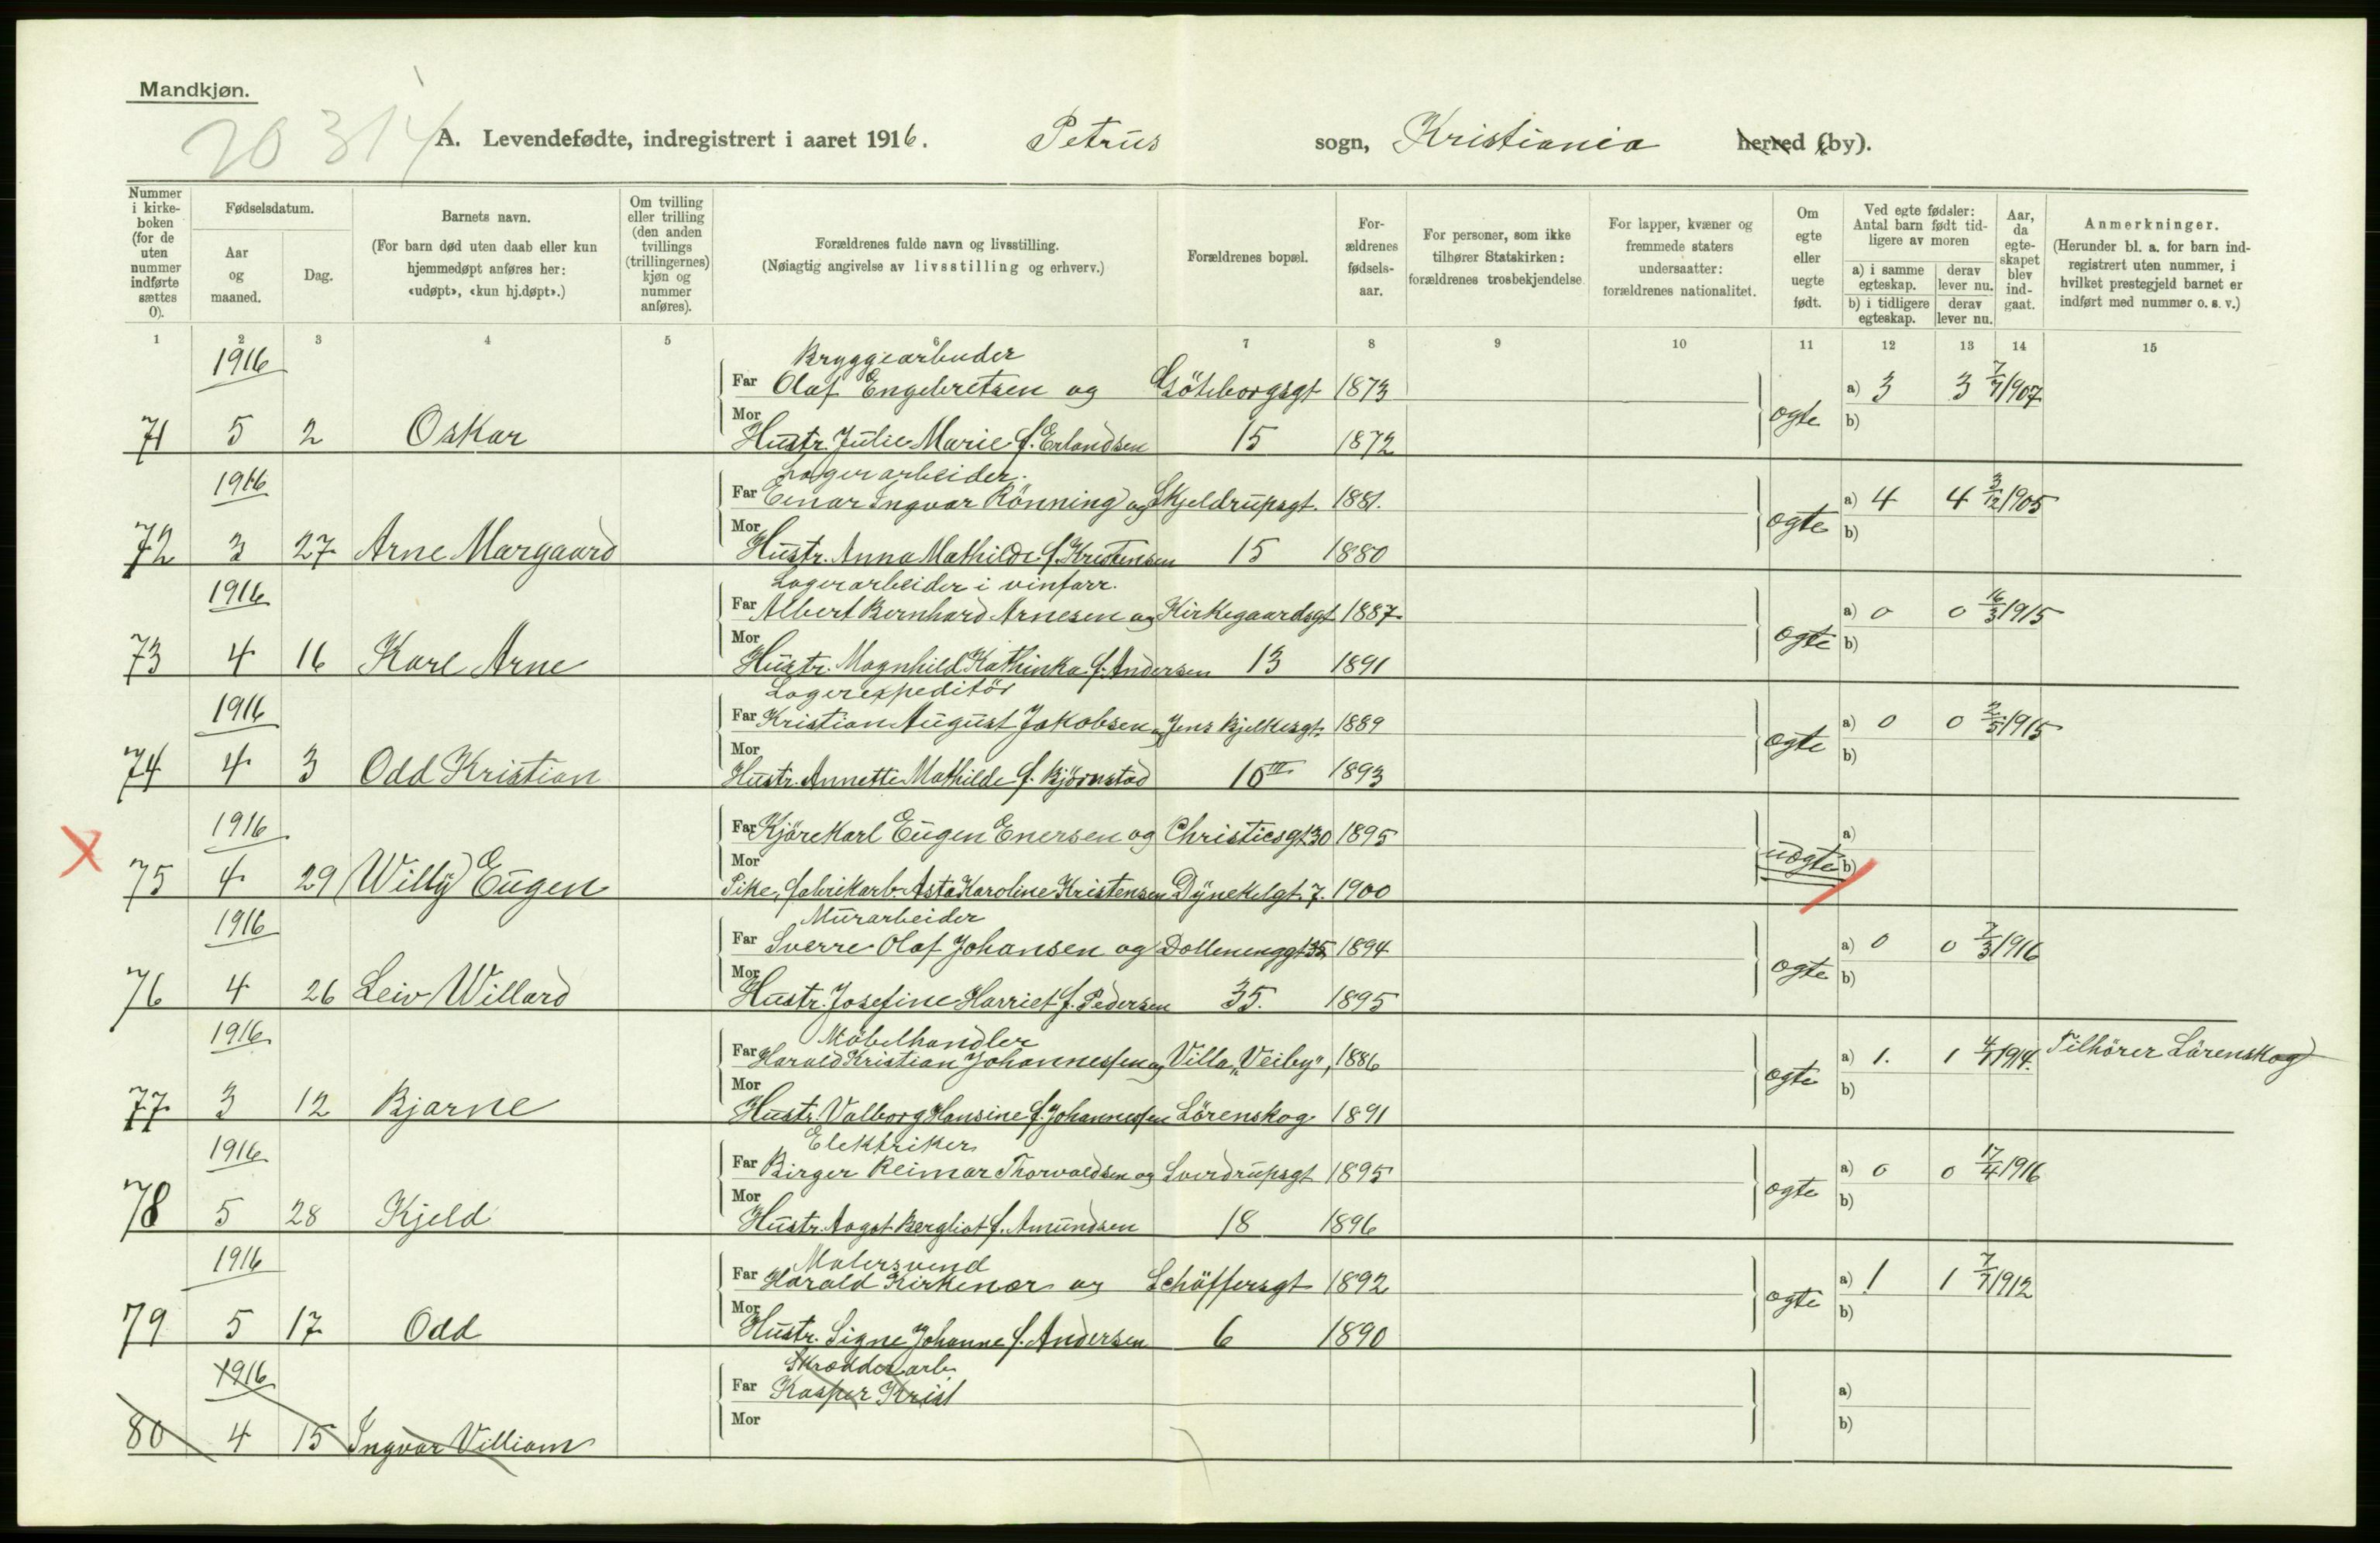 Mandkjøn.
20 314
A. Levendefødte, indregistrert i aaret 1916. Petrus sogn, Kristiania herred (by).
Nummer i kirkeboken (for de uten nummer indførte sættes 0).
Fødselsdatum.
Aar og maaned.
Dag.
Barnets navn.
(For barn død uten daab eller kun hjemmedøpt anføres her: «udøpt», «kun hj.døpt».)
Om tvilling eller trilling (den anden tvillings (trillingernes) kjøn og nummer anføres).
Forældrenes fulde navn og livsstilling.
(Nøiagtig angivelse av livsstilling og erhverv.)
Forældrenes bopæl.
For-ældrenes fødsels-aar.
For personer, som ikke tilhører Statskirken: forældrenes trosbekjendelse
For lapper, kvæner og fremmede staters undersaatter: forældrenes nationalitet.
Om egte eller uegte født.
Ved egte fødsler: Antal barn født tid-ligere av moren
a) i samme egteskap. derav lever nu.
b) i tidligere egteskap. derav lever nu.
Aar, da egte-skapet blev ind-gaat.
Anmerkninger.
(Herunder bl. a. for barn ind-registrert uten nummer, i hvilket prestegjeld barnet er indført med nummer o. s. v.)
1 2 3 4 5 6 7 8 9 10 11 12 13 14 15
1916 Bryggearbeider
Far Olaf Engebretsen og Göteborgsgt 1873 a) 3 3 7/7 1907
71 5 2 Oskar Mor Hustr. Julie Marie f. Erlandsen 15 1872 egte b)
1916 Lagerarbeider.
Far Einar Ingvar Rönning og Skjeldrupsgt. 1881. a) 4 4 3/12 1905
72 3 27 Arne Margaard Mor Hustr. Anna Mathilde f. Kristensen 15 1880 egte b)
1916 Lagerarbeider i vinforr.
Far Albert Bernhard Arnesen og Kirkegaardsgt 1887 a) 0 0 16/3 1915
73 4 16 Karl Arne Mor Hustr. Magnhild Kathinka f. Andersen 13 1891 egte b)
1916 Lagerexpeditör
Far Kristian August Jakobsen og Jens Bjelkesgt. 1889 a) 0 0 2/5 1915
74 4 3 Odd Kristian Mor Hustr. Annette Mathilde f. Björnstad 10 III 1893 egte b)
1916 Far Kjörekarl Eugen Enersen og Christiesgt 30 1895 a)
75 4 29 Willy Eugen Mor Pike, fabrikarb. Asta Karoline Kristensen Dynekilgt. 7. 1900 uegte b)
1916 Murarbeider
Far Sverre Olaf Johansen og Dollenenggt 35 1894 a) 0 0 7/3 1916
76 4 26 Leiv Willard Mor Hustr. Josefine Harriet f. Pedersen 35. 1895 egte b)
1916 Möbelhandler
Far Harald Kristian Johannessen og Villa „Veiby", 1886 a) 1. 1 4/7 1914. Tilhörer Lörenskog
77 3 12 Bjarne Mor Hustr. Valborg Hansine f. Johannessen Lörenskog 1891 egte b)
1916 Elektriker
Far Birger Reimar Thorvaldsen og Sverdrupsgt 1895 a) 0 0 17/4 1916
78 5 28 Kjeld Mor Hustr. Aagot Bergliot f. Amundsen 18 1896 egte b)
1916 Malersvend
Far Harald Kirkenær og Schöffersgt 1892 a) 1 1 7/7 1912
79 5 17 Odd Mor Hustr. Signe Johanne f. Andersen 6 1890 egte b)
1916 Skrædderarb.
Far Kasper Krist a)
80 4 15 Ingvar Villiam Mor b)